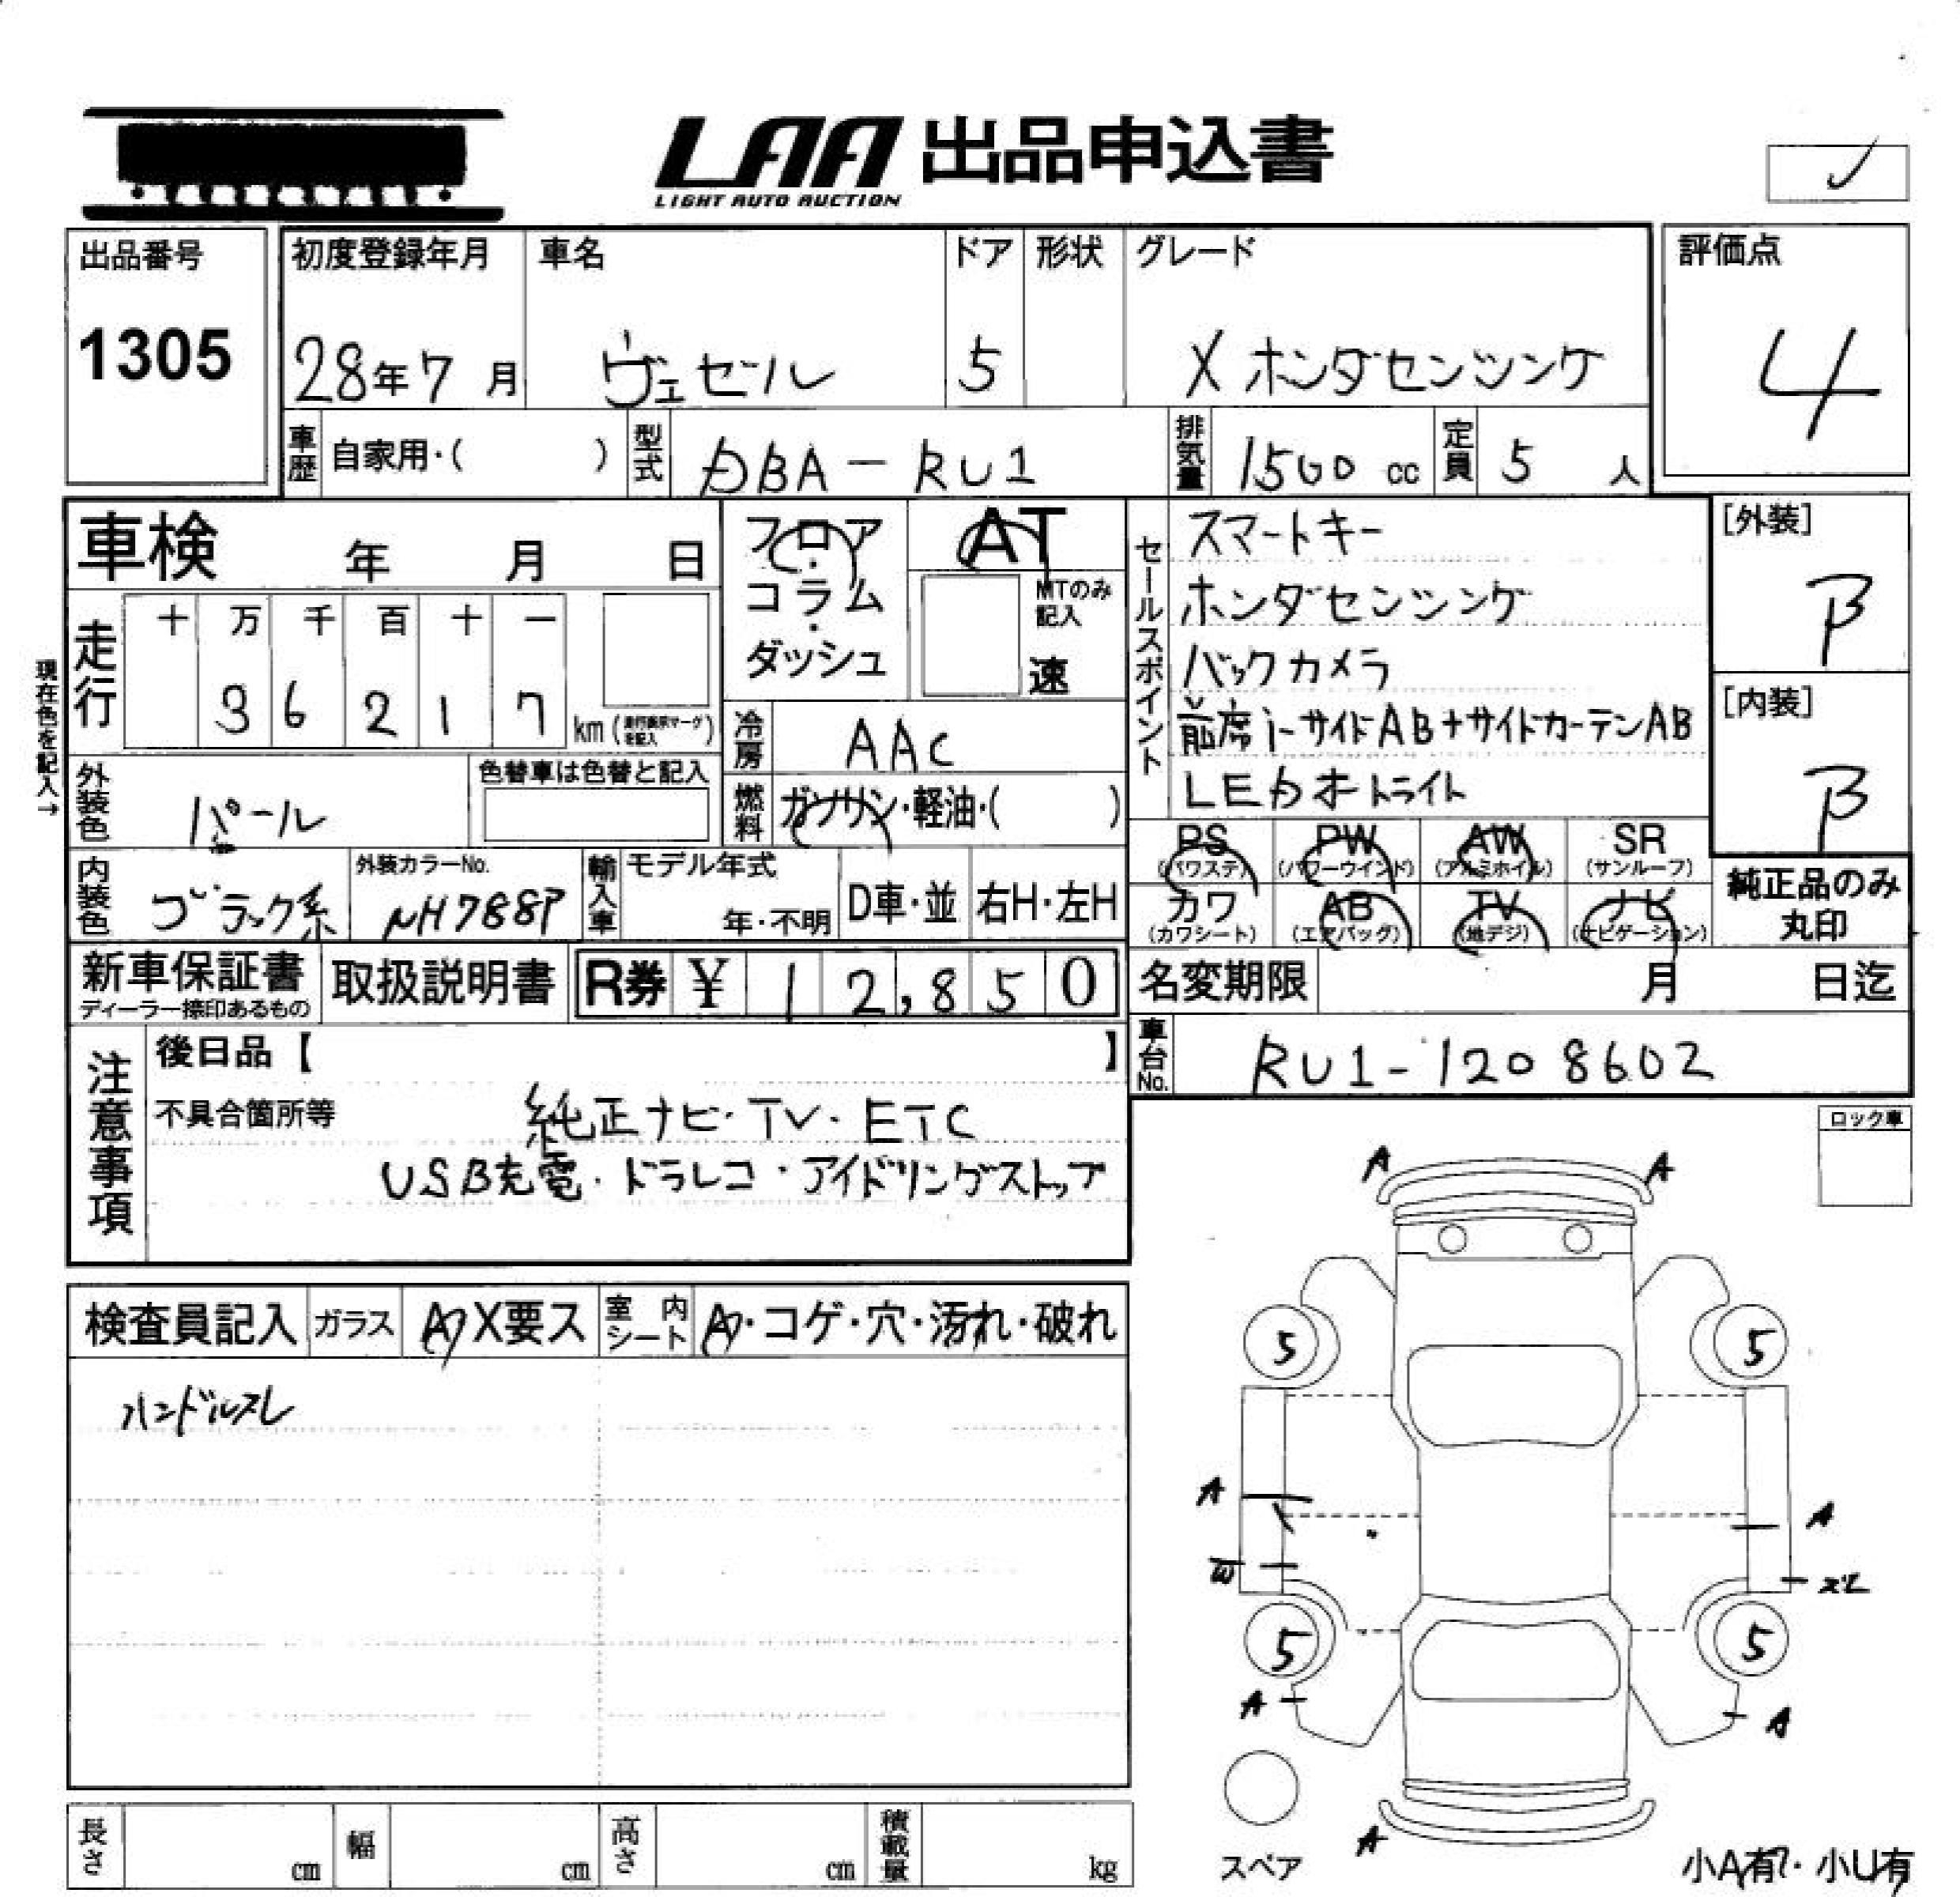 LAA 出品申込書
LIGHT AUTO AUCTION
出品番号
1305
初度登録年月 車名 ドア 形状 グレード
28年7月 ヴェゼル 5 X ホンダセンシング
評価点
4
車歴 自家用・( ) 型式 DBA-RU1 排気量 1500 cc 定員 5 人
車検 年 月 日
フロア・コラム・ダッシュ
AT
MTのみ記入
速
走行
十 万 千 百 十 一
3 6 2 1 7 km
現在色を記入→
冷房 AAC
外装色 パール
色替車は色替と記入
燃料 ガソリン・軽油・( )
内装色 ブラック系
外装カラーNo.
NH788P
輸入車 モデル年式
年・不明
D車・並 右H・左H
セールスポイント
スマートキー
ホンダセンシング
バックカメラ
前席i-サイドAB+サイドカーテンAB
LEDオートライト
[外装]
B
[内装]
B
PS PW AW SR
(パワステ) (パワーウインド) (アルミホイル) (サンルーフ)
カワ AB TV ナビ
(カワシート) (エアバッグ) (地デジ) (ナビゲーション)
純正品のみ
丸印
新車保証書
ディーラー捺印あるもの
取扱説明書
R券 ¥ 12,850
名変期限 月 日迄
車台No. RU1-1208602
注意事項
後日品【 】
不具合箇所等
純正ナビ・TV・ETC
USB充電・ドラレコ・アイドリングストップ
ロック車
検査員記入 ガラス A X要ス 室内シート A・コゲ・穴・汚れ・破れ
ハンドルスレ
A A
5 5
A A
W スレ
5 5
A A
A
スペア
小A有・小U有
長さ cm 幅 cm 高さ cm 積載量 kg